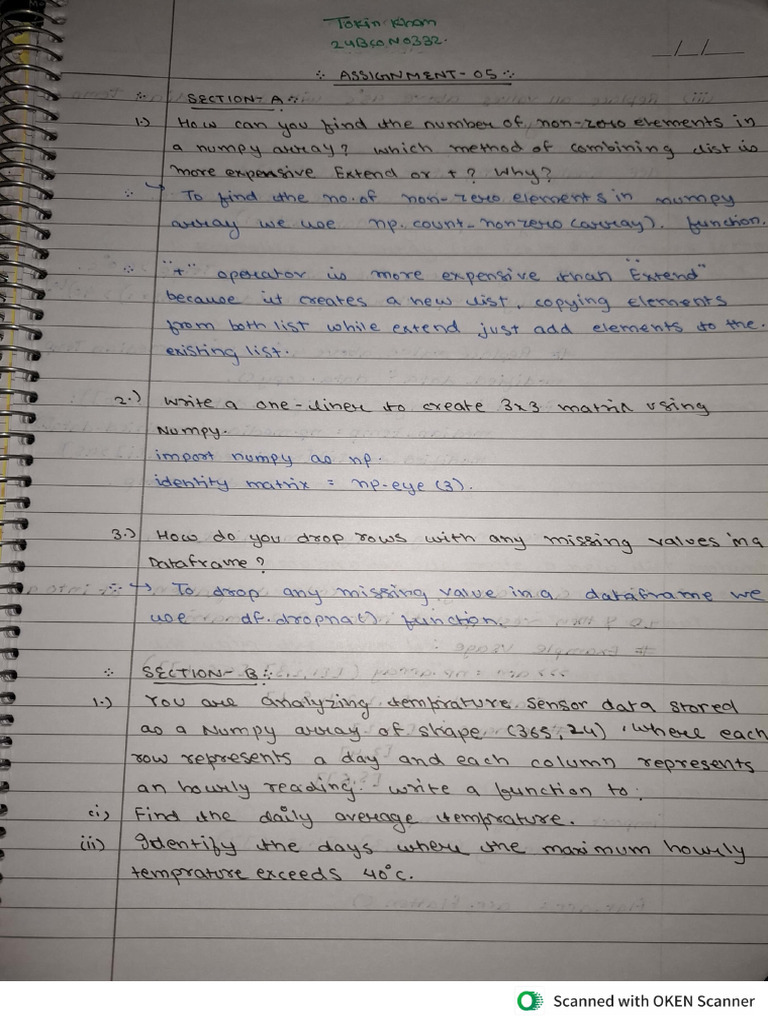 Tokin Khan
24BCON0332.
_/_/_
∴ ASSIGNMENT-05 ∴
∴ SECTION-A ∴
1.) How can you find the number of non-zero elements in
a numpy array? which method of combining list is
more expensive Extend or +? Why?
∴ ↳ To find the no. of non-zero elements in numpy
array we use np.count-nonzero(array). function.
∴ "+" operator is more expensive than "Extend"
because it creates a new list, copying elements
from both list while extend just add elements to the.
existing list.
2.) Write a one-liner to create 3x3 matrix using
Numpy.
import numpy as np.
identity matrix = np-eye (3).
3.) How do you drop rows with any missing values in a
Dataframe?
∴ ↳ To drop any missing value in a dataframe we
use df.dropna() function.
∴ SECTION-B ∴
1.) You are analyzing temprature sensor data stored
as a Numpy array of shape (365, 24), where each
row represents a day and each column represents
an hourly reading. write a function to:
(i) Find the daily average temprature.
(ii) Identify the days where the maximum hourly
temprature exceeds 40°c.
Scanned with OKEN Scanner